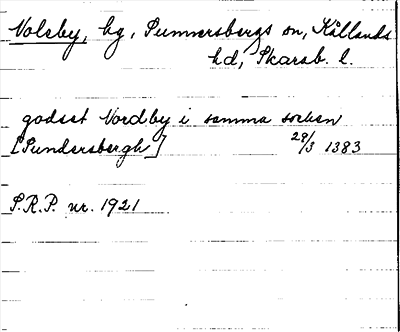 Nolsby, hg, Sunnersbergs sn, Kållands
hd, Skarab. l.
godset Nordby i samma socken
[Sundersbergh] 29/3 1383
S.R.P. nr. 1921